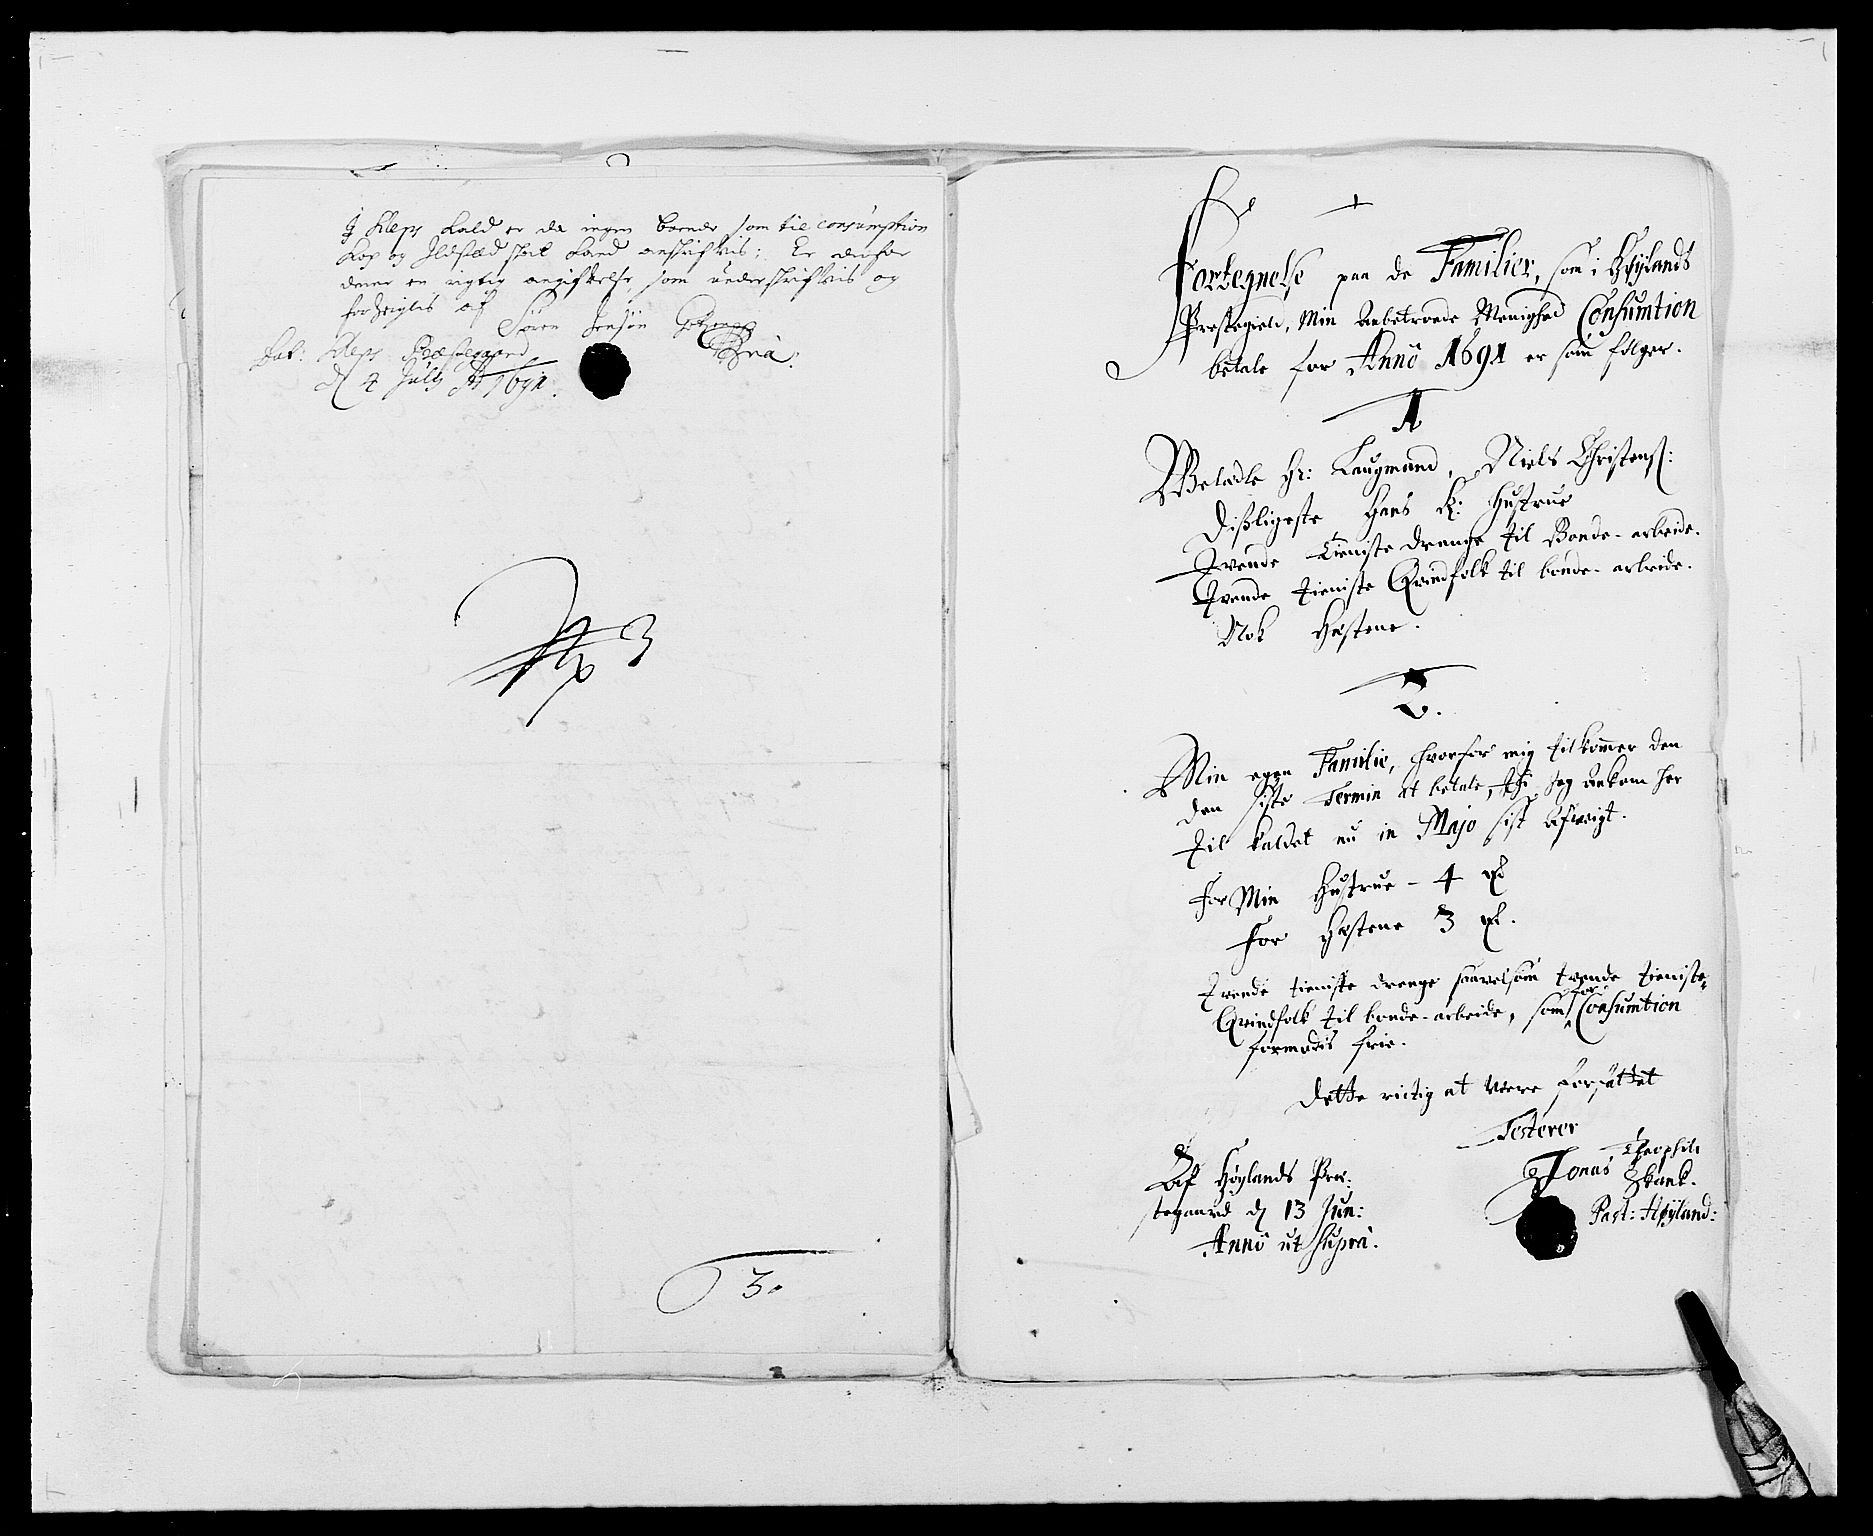 I Kleps Kald er de ingen bønder som til consumption
Kop og Ildsted skat kand anskrifvis: Er derfor
denne en rigtig angifvelse som underskrifvis og
forseiglis af
Søren Jensøn
Dab: Kleps Præstegaard
d 4 July Ao 1691.
No 3
3.
Fortegnelse paa de Familier, som i Høylands
Prestegield, Min Anbetroede Menighed Consumtion
betale for Anno 1691 er som følger.
1
Welædle Hr: Laugmand, Niels Christens:
Dißligeste Hans K: Hustrue
Tvende tieniste drenge til Bonde-arbeide.
Tvende tieniste Qvindfolk til bonde-arbeide.
Nok Hestene.
2.
Min egen Familie, hvorfor mig tilkommer den
den siste Termin at betale, thi Jeg ankom her
til kaldet nu in Majo sist afvigt.
for Min Hustrue - 4
for Hestene 3
Tvende tieniste drenge saavelsom tvende tieniste-
Qvindfolk til bonde-arbeide, som for Consumtion
formodis frie.
Dette rictig at være forfattet
Testerer
Af Høylands Pre:
stegaard d 13 Jun:
Anno ut supra.
Jonas Theophili
Skank.
Past: Høyland: